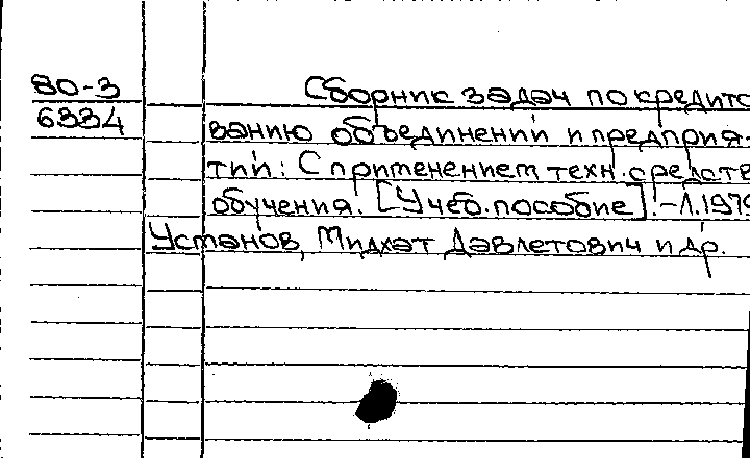 80-3
6334
Сборник задач по кредито
ванию объединений и предприя-
тий: С применением техн. средств
обучения. [Учеб. пособие]. - Л. 1979
Установ, Мидхат Давлетович и др.